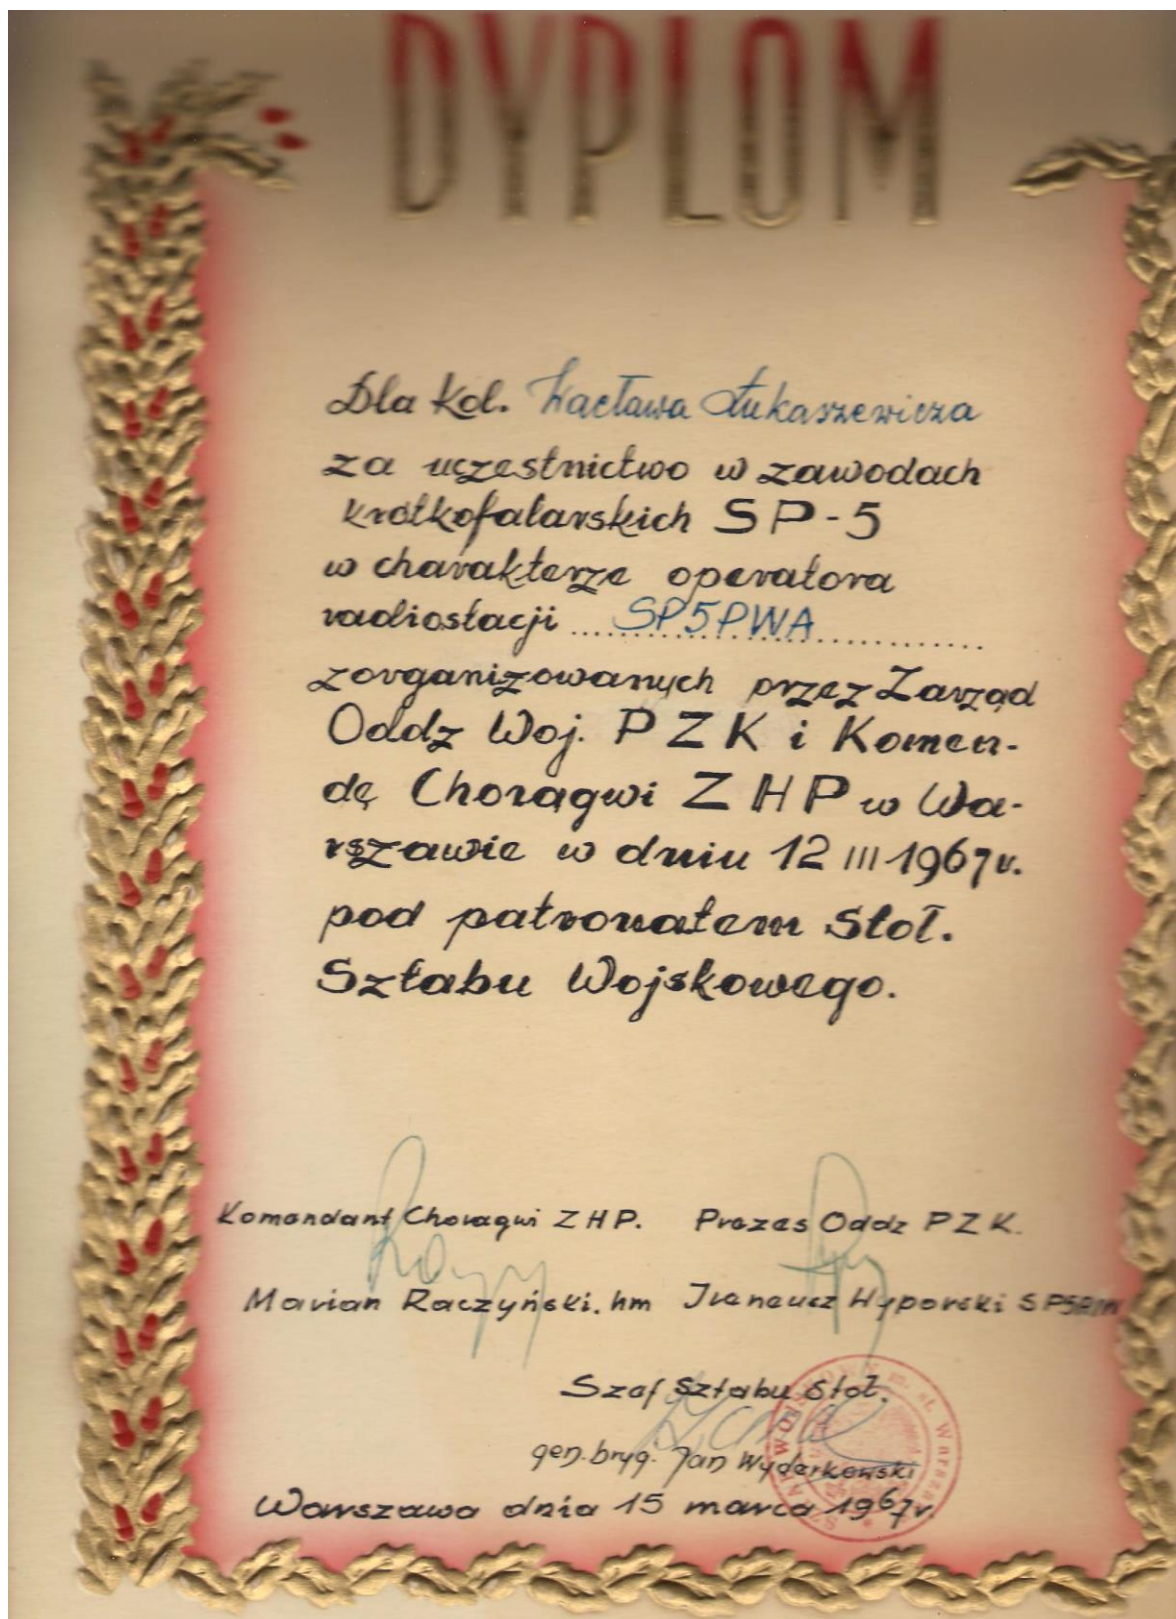 DYPLOM
Dla Kol. Wacława Łukaszewicza
za uczestnictwo w zawodach
krótkofalarskich SP-5
w charakterze operatora
radiostacji ... SP5PWA ...............
zorganizowanych przez Zarząd
Oddz Woj. PZK i Komen-
dę Chorągwi ZHP w Wa-
rszawie w dniu 12 III 1967 r.
pod patronatem Stoł.
Sztabu Wojskowego.
Komendant Chorągwi ZHP. Prezes Oddz PZK.
Marian Raczyński. hm Ireneusz Wyporski
Szef Sztabu Stoł.
gen. bryg. Jan Wyderkowski
Warszawa dnia 15 marca 1967 r.